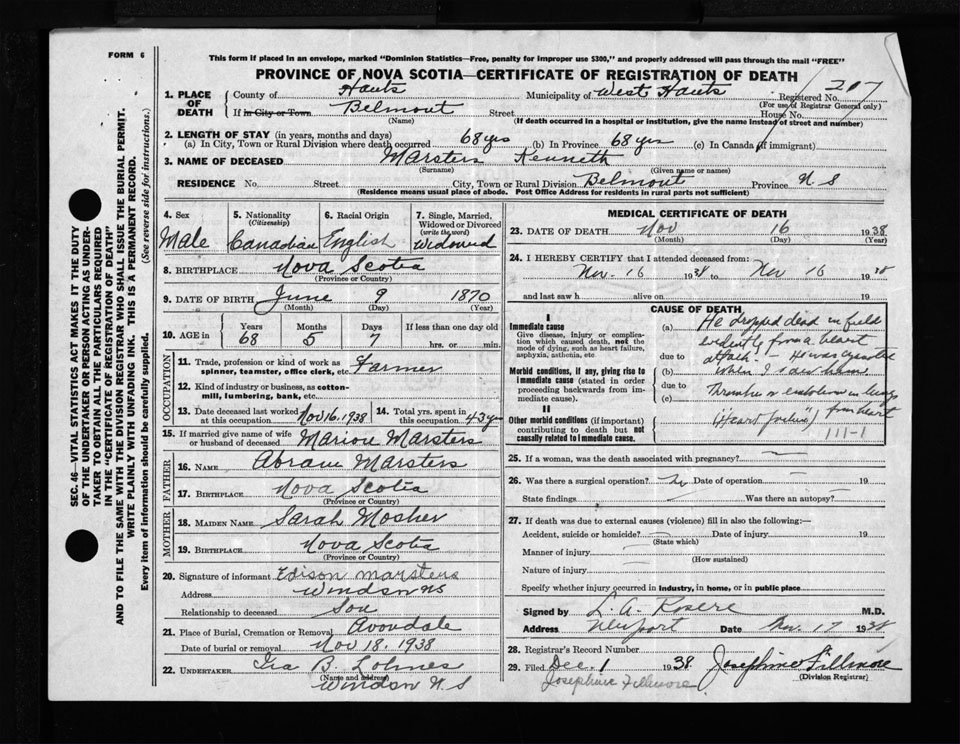 FORM 6
This form if placed in an envelope, marked "Dominion Statistics—Free, penalty for improper use $300," and properly addressed will pass through the mail "FREE"
PROVINCE OF NOVA SCOTIA—CERTIFICATE OF REGISTRATION OF DEATH
207
1. PLACE OF DEATH County of Hants Municipality of West Hants Registered No.
(For use of Registrar General only)
If in City or Town Belmont Street House No.
(Name) (If death occurred in a hospital or institution, give the name instead of street and number)
2. LENGTH OF STAY (in years, months and days)
(a) In City, Town or Rural Division where death occurred 68 yrs (b) In Province 68 yrs (c) In Canada (if immigrant)
3. NAME OF DECEASED Marsters Kenneth
(Surname) (Given name or names)
RESIDENCE No. Street City, Town or Rural Division Belmont Province N S
(Residence means usual place of abode. Post Office Address for residents in rural parts not sufficient)
4. Sex 5. Nationality (Citizenship) 6. Racial Origin 7. Single, Married, Widowed or Divorced (write the word)
Male Canadian English Widowed
8. BIRTHPLACE Nova Scotia
(Province or Country)
9. DATE OF BIRTH June 9 1870
(Month) (Day) (Year)
10. AGE in Years Months Days If less than one day old
68 5 7 hrs. or min.
OCCUPATION
11. Trade, profession or kind of work as spinner, teamster, office clerk, etc. Farmer
12. Kind of industry or business, as cotton-mill, lumbering, bank, etc.
13. Date deceased last worked at this occupation Nov 16. 1938 14. Total yrs. spent in this occupation 43 yrs
15. If married give name of wife or husband of deceased Marion Marsters
FATHER
16. NAME Abram Marsters
17. BIRTHPLACE Nova Scotia
(Province or Country)
MOTHER
18. MAIDEN NAME Sarah Mosher
19. BIRTHPLACE Nova Scotia
(Province or Country)
20. Signature of informant Edison Marsters
Address Windsor NS
Relationship to deceased Son
21. Place of Burial, Cremation or Removal Avondale
Date of burial or removal Nov 18. 1938
22. UNDERTAKER Ira B. Lohnes
(Name and address)
Windsor N S
MEDICAL CERTIFICATE OF DEATH
23. DATE OF DEATH Nov 16 1938
(Month) (Day) (Year)
24. I HEREBY CERTIFY that I attended deceased from:
Nov. 16 1938 to Nov 16 1938
and last saw h alive on 19
CAUSE OF DEATH
I
Immediate cause
Give disease, injury or complication which caused death, not the mode of dying, such as heart failure, asphyxia, asthenia, etc.
Morbid conditions, if any, giving rise to immediate cause (stated in order proceeding backwards from immediate cause).
II
Other morbid conditions (if important) contributing to death but not causally related to immediate cause.
(a) He dropped dead in field
evidently from a heart
due to attack. — He was
(b) when I saw him
due to
(c) Thrombus or embolism in lungs
from heart
(Heart failure)
111-1
25. If a woman, was the death associated with pregnancy?
26. Was there a surgical operation? No Date of operation 19
State findings Was there an autopsy?
27. If death was due to external causes (violence) fill in also the following:—
Accident, suicide or homicide? Date of injury 19
(State which)
Manner of injury
(How sustained)
Nature of injury
Specify whether injury occurred in industry, in home, or in public place
Signed by L. A. M.D.
Address Newport Date Nov. 17 1938
28. Registrar's Record Number
29. Filed Dec. 1 1938 Josephine Fillmore
(Division Registrar)
Josephine Fillmore
SEC. 46—VITAL STATISTICS ACT MAKES IT THE DUTY
OF THE UNDERTAKER OR PERSON ACTING AS UNDER-
TAKER TO OBTAIN ALL THE PARTICULARS REQUIRED
IN THE "CERTIFICATE OF REGISTRATION OF DEATH"
AND TO FILE THE SAME WITH THE DIVISION REGISTRAR WHO SHALL ISSUE THE BURIAL PERMIT.
WRITE PLAINLY WITH UNFADING INK. THIS IS A PERMANENT RECORD.
Every item of information should be carefully supplied. (See reverse side for instructions.)